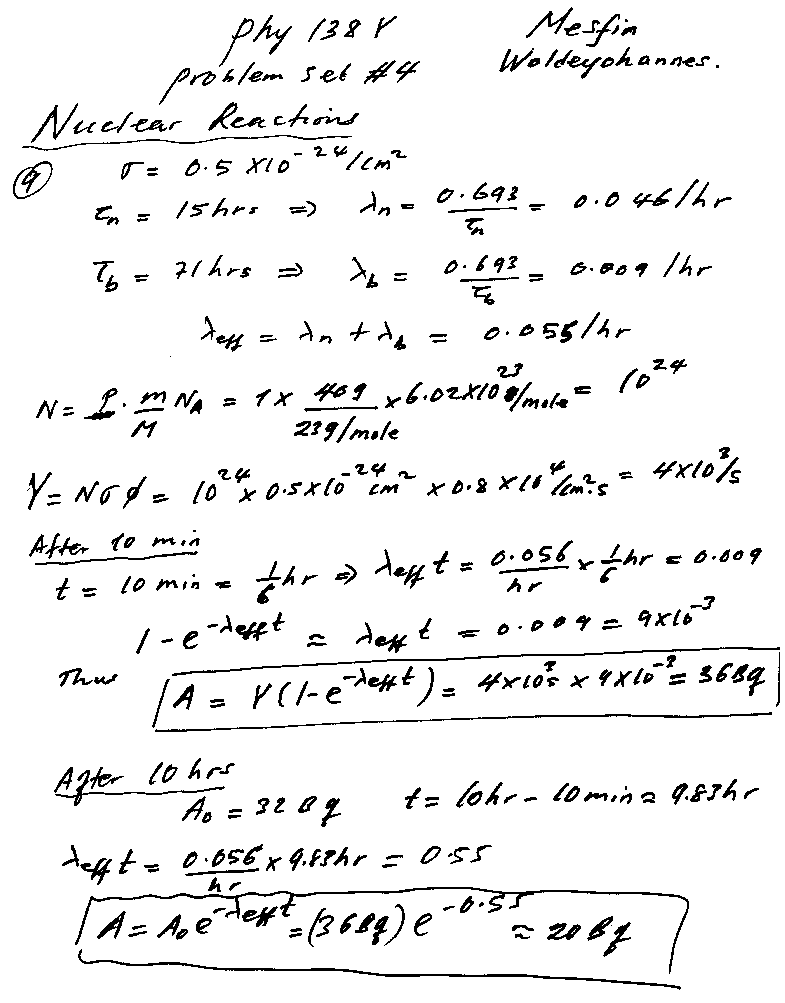 Phy 138 Y Mesfin
problem set #4 Woldeyohannes.
Nuclear Reactions
9 σ = 0.5 X10^-24/cm^2
τn = 15hrs ⇒ λn = 0.693/τn = 0.046/hr
τb = 71hrs ⇒ λb = 0.693/τb = 0.009 /hr
λeff = λn + λb = 0.055/hr
N = ρ · m/M NA = 1 x 40g/23g/mole x 6.02X10^23/mole = 10^24
Y = Nσφ = 10^24 x 0.5x10^-24 cm^2 x 0.8 x 10^4/cm^2·s = 4x10^3/s
After 10 min
t = 10 min = 1/6 hr ⇒ λeff t = 0.056/hr x 1/6 hr = 0.009
1 - e^-λeff t ≈ λeff t = 0.009 = 9x10^-3
Thus A = Y(1-e^-λeff t) = 4x10^3 x 9x10^-3 = 36Bq
After 10 hrs
A0 = 32 Bq t = 10hr - 10min = 9.83hr
λeff t = 0.056/hr x 9.83hr = 0.55
A = A0 e^-λeff t = (36Bq) e^-0.55 ≈ 20 Bq